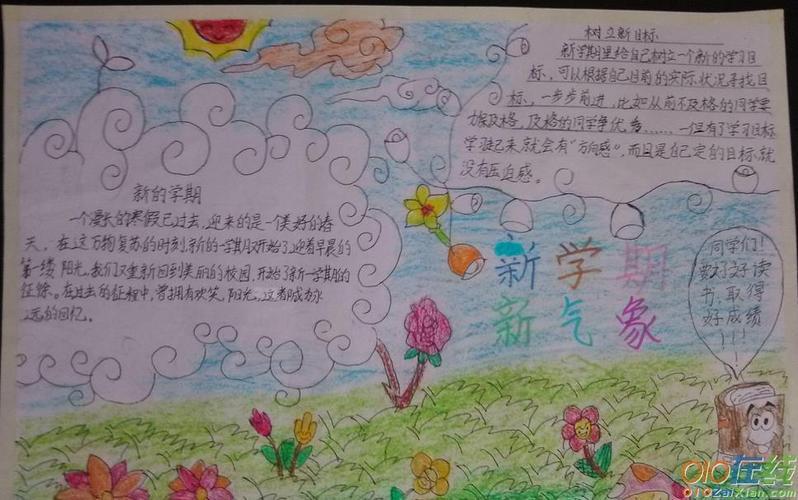 树立新目标
新学期里给自己树立一个新的学习目
标，可以根据自己目前的实际状况寻找目
标，一步步前进，比如从前不及格的同学要
力挨及格，及格的同学争优秀……一但有了学习目标
学习起来，就会有"方向感"，而且是自己定的目标，就
没有压迫感。
新的学期
一个漫长的寒假已过去，迎来的是一个美好的春
天，在这万物复苏的时刻，新的一学期又开始了，迎着早晨的
第一缕阳光，我们又重新回到美丽的校园，开始了新一学期的
征途。在过去的征程中，曾拥有欢笑，阳光，这都成为永
远的回忆。
新学期
新气象
同学们！
要好好读
书，取得
好成绩
！！！
010在线
010zaixian.com